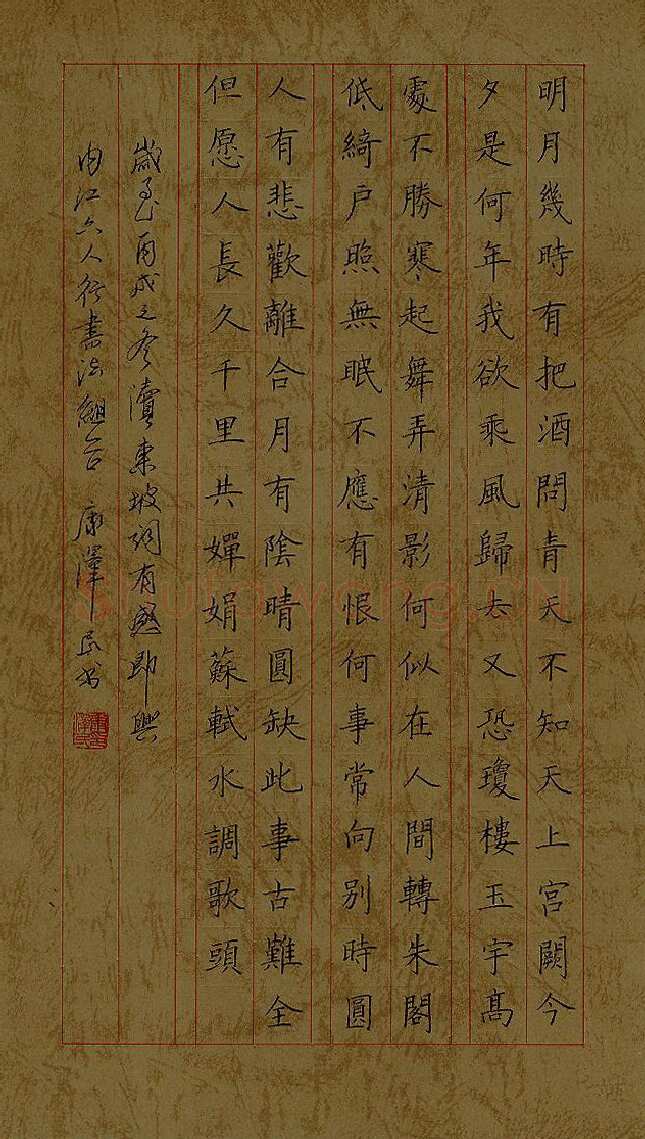 明月幾時有把酒問青天不知天上宮闕今
夕是何年我欲乘風歸去又恐瓊樓玉宇髙
處不勝寒起舞弄清影何似在人間轉朱閣
低綺户照無眠不應有恨何事常向别時圓
人有悲歡離合月有陰晴圓缺此事古難全
但愿人長久千里共嬋娟蘇軾水調歌頭
歲西戌之冬讀東坡詞有感即興
内江六人行書法組合 康澤民书